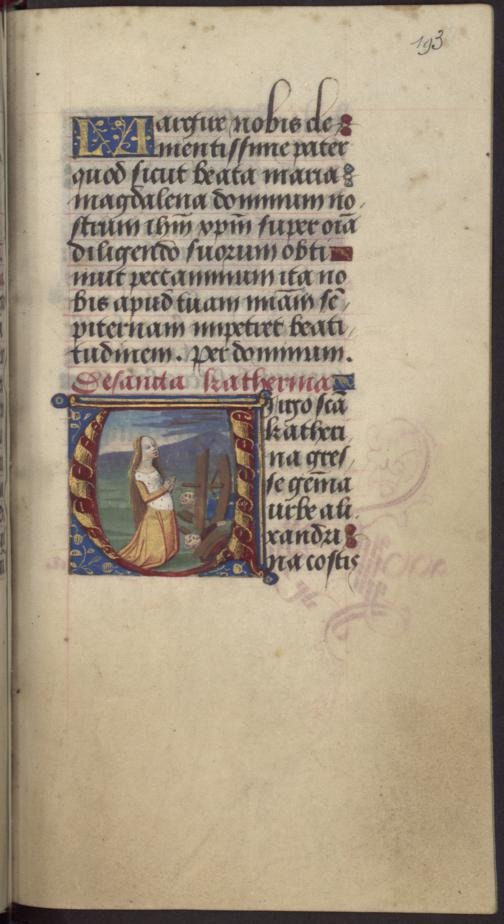 193
LArgire nobis cle
mentissime pater
quod sicut beata maria
magdalena dominum no
strum ihm xpm super oia
diligendo suorum obti
nuit peccaminum ita no
bis apud tuam miam se
piternam impetret beati
tudinem. Per dominum.
De sancta katherina
Virgo sca
katheri
na gres
se gema
urbe ali
xandri
na costis